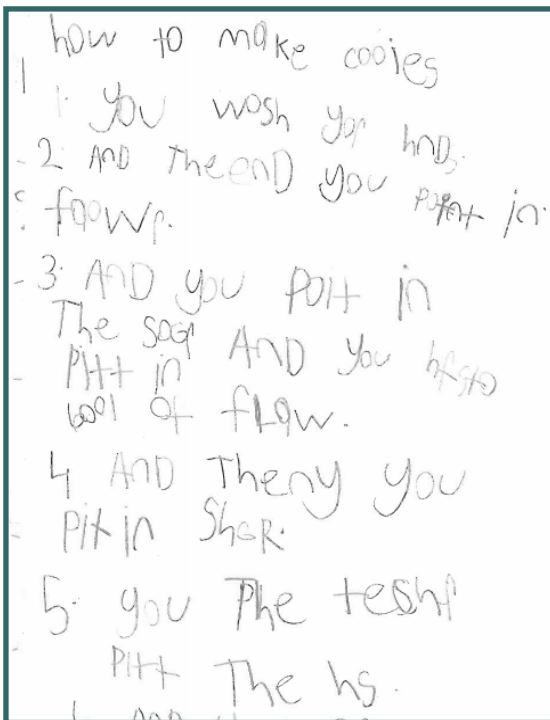 how to make cooies
1. you wosh yor hnD.
2 AnD TheenD you point in
faowr.
3. AnD you poit in
The sogr AnD you hfsto
pitt in
bool of flaw.
4 AnD Theny you
pit in ShGR.
5. you The teshr
pitt The hs.